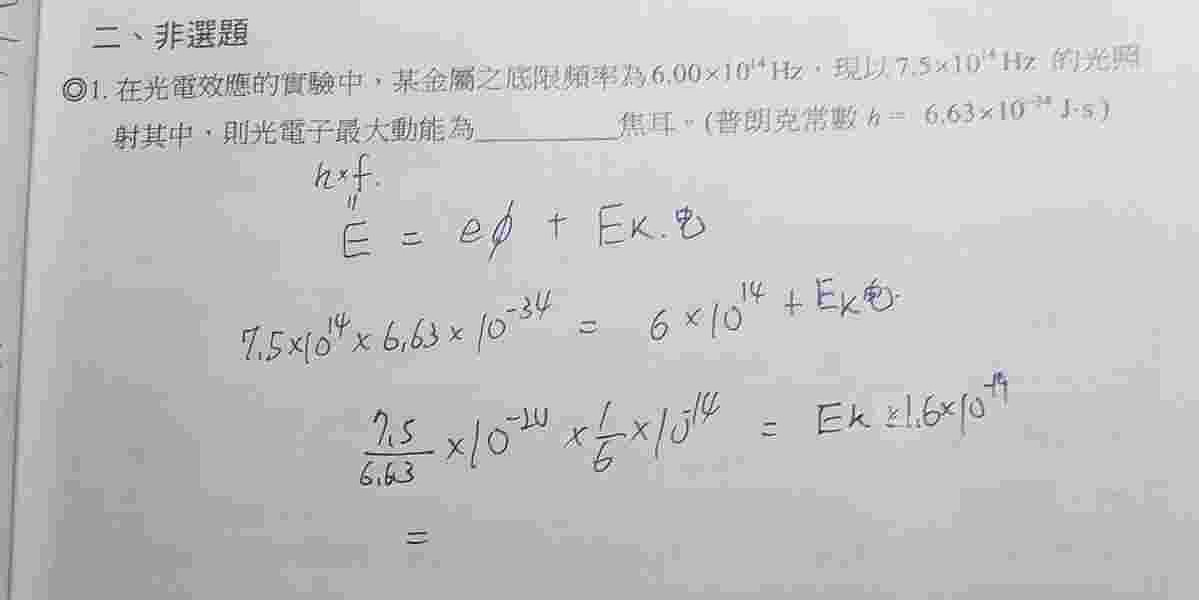 二、非選題
◎1. 在光電效應的實驗中，某金屬之底限頻率為6.00×10¹⁴Hz，現以7.5×10¹⁴Hz 的光照
射其中，則光電子最大動能為________焦耳。(普朗克常數 h = 6.63×10⁻³⁴ J·s)
h×f.
=
E = eϕ + Eк.电
7.5×10¹⁴×6.63×10⁻³⁴ = 6×10¹⁴ + Eк电.
7.5/6.63 ×10⁻²⁰ × 1/6 ×10⁻¹⁴ = Ek ×1.6×10⁻¹⁹
=